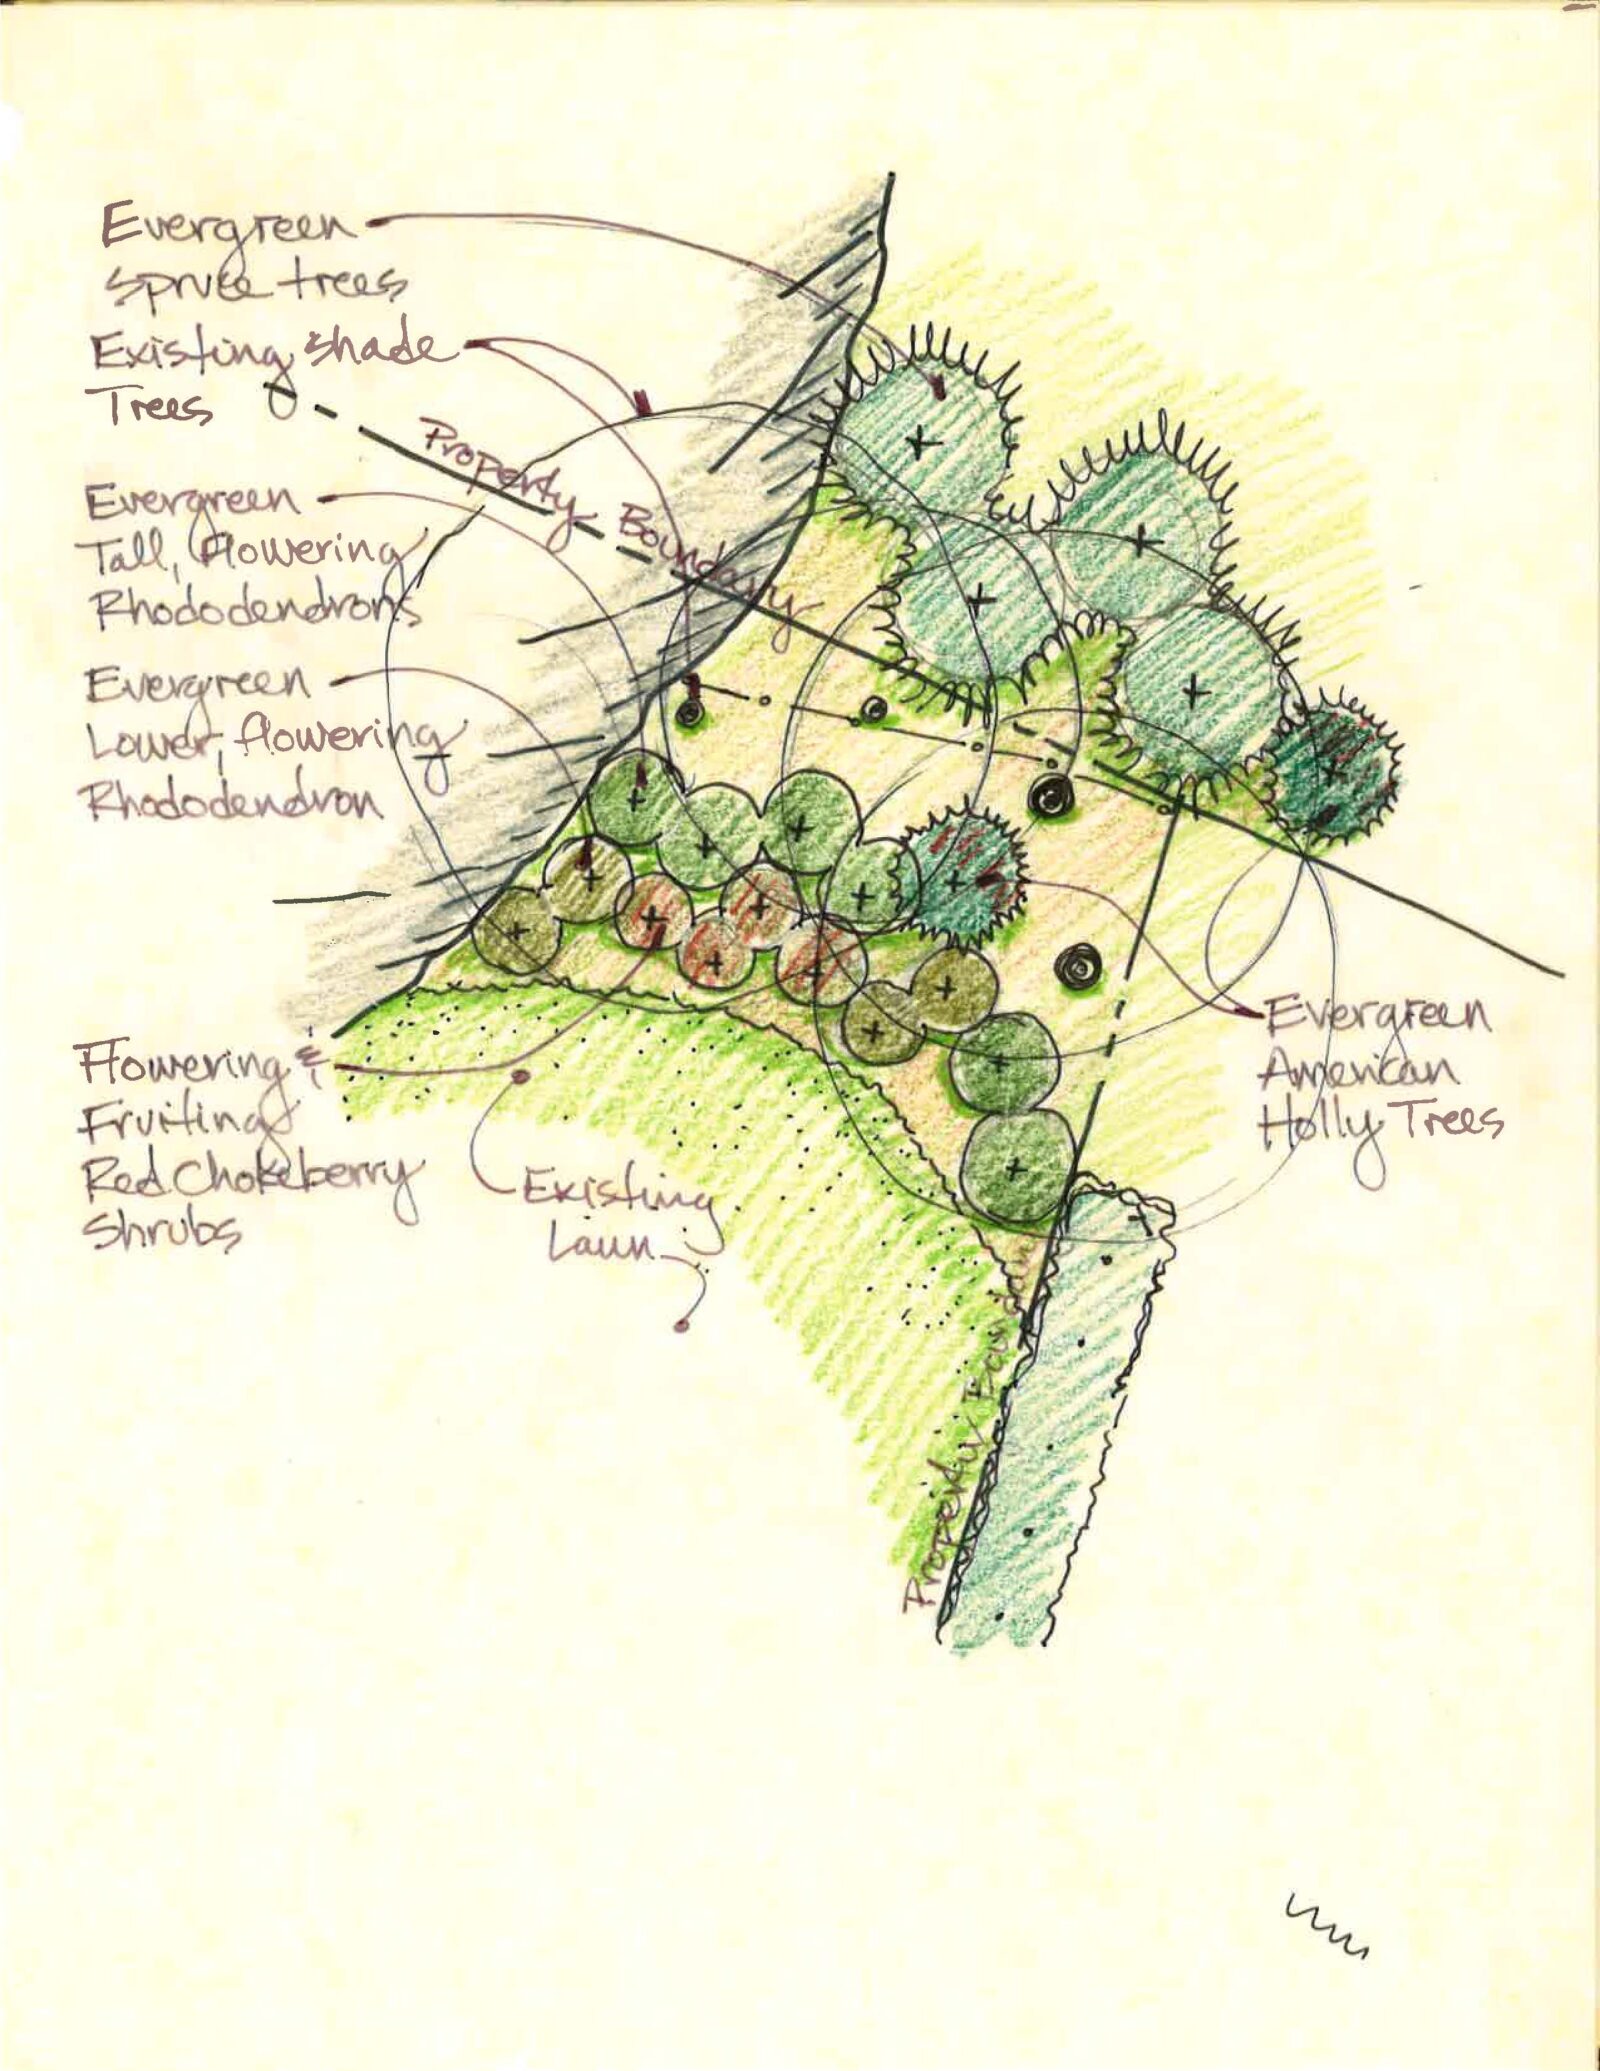 Evergreen
Spruce trees
Existing Shade
Trees
Property Boundary
Evergreen
Tall, Flowering
Rhododendrons
Evergreen
Lower, flowering
Rhododendron
Flowering &
Fruiting
Red Chokeberry
Shrubs
Existing
Lawn
Evergreen
American
Holly Trees
Property Boundary